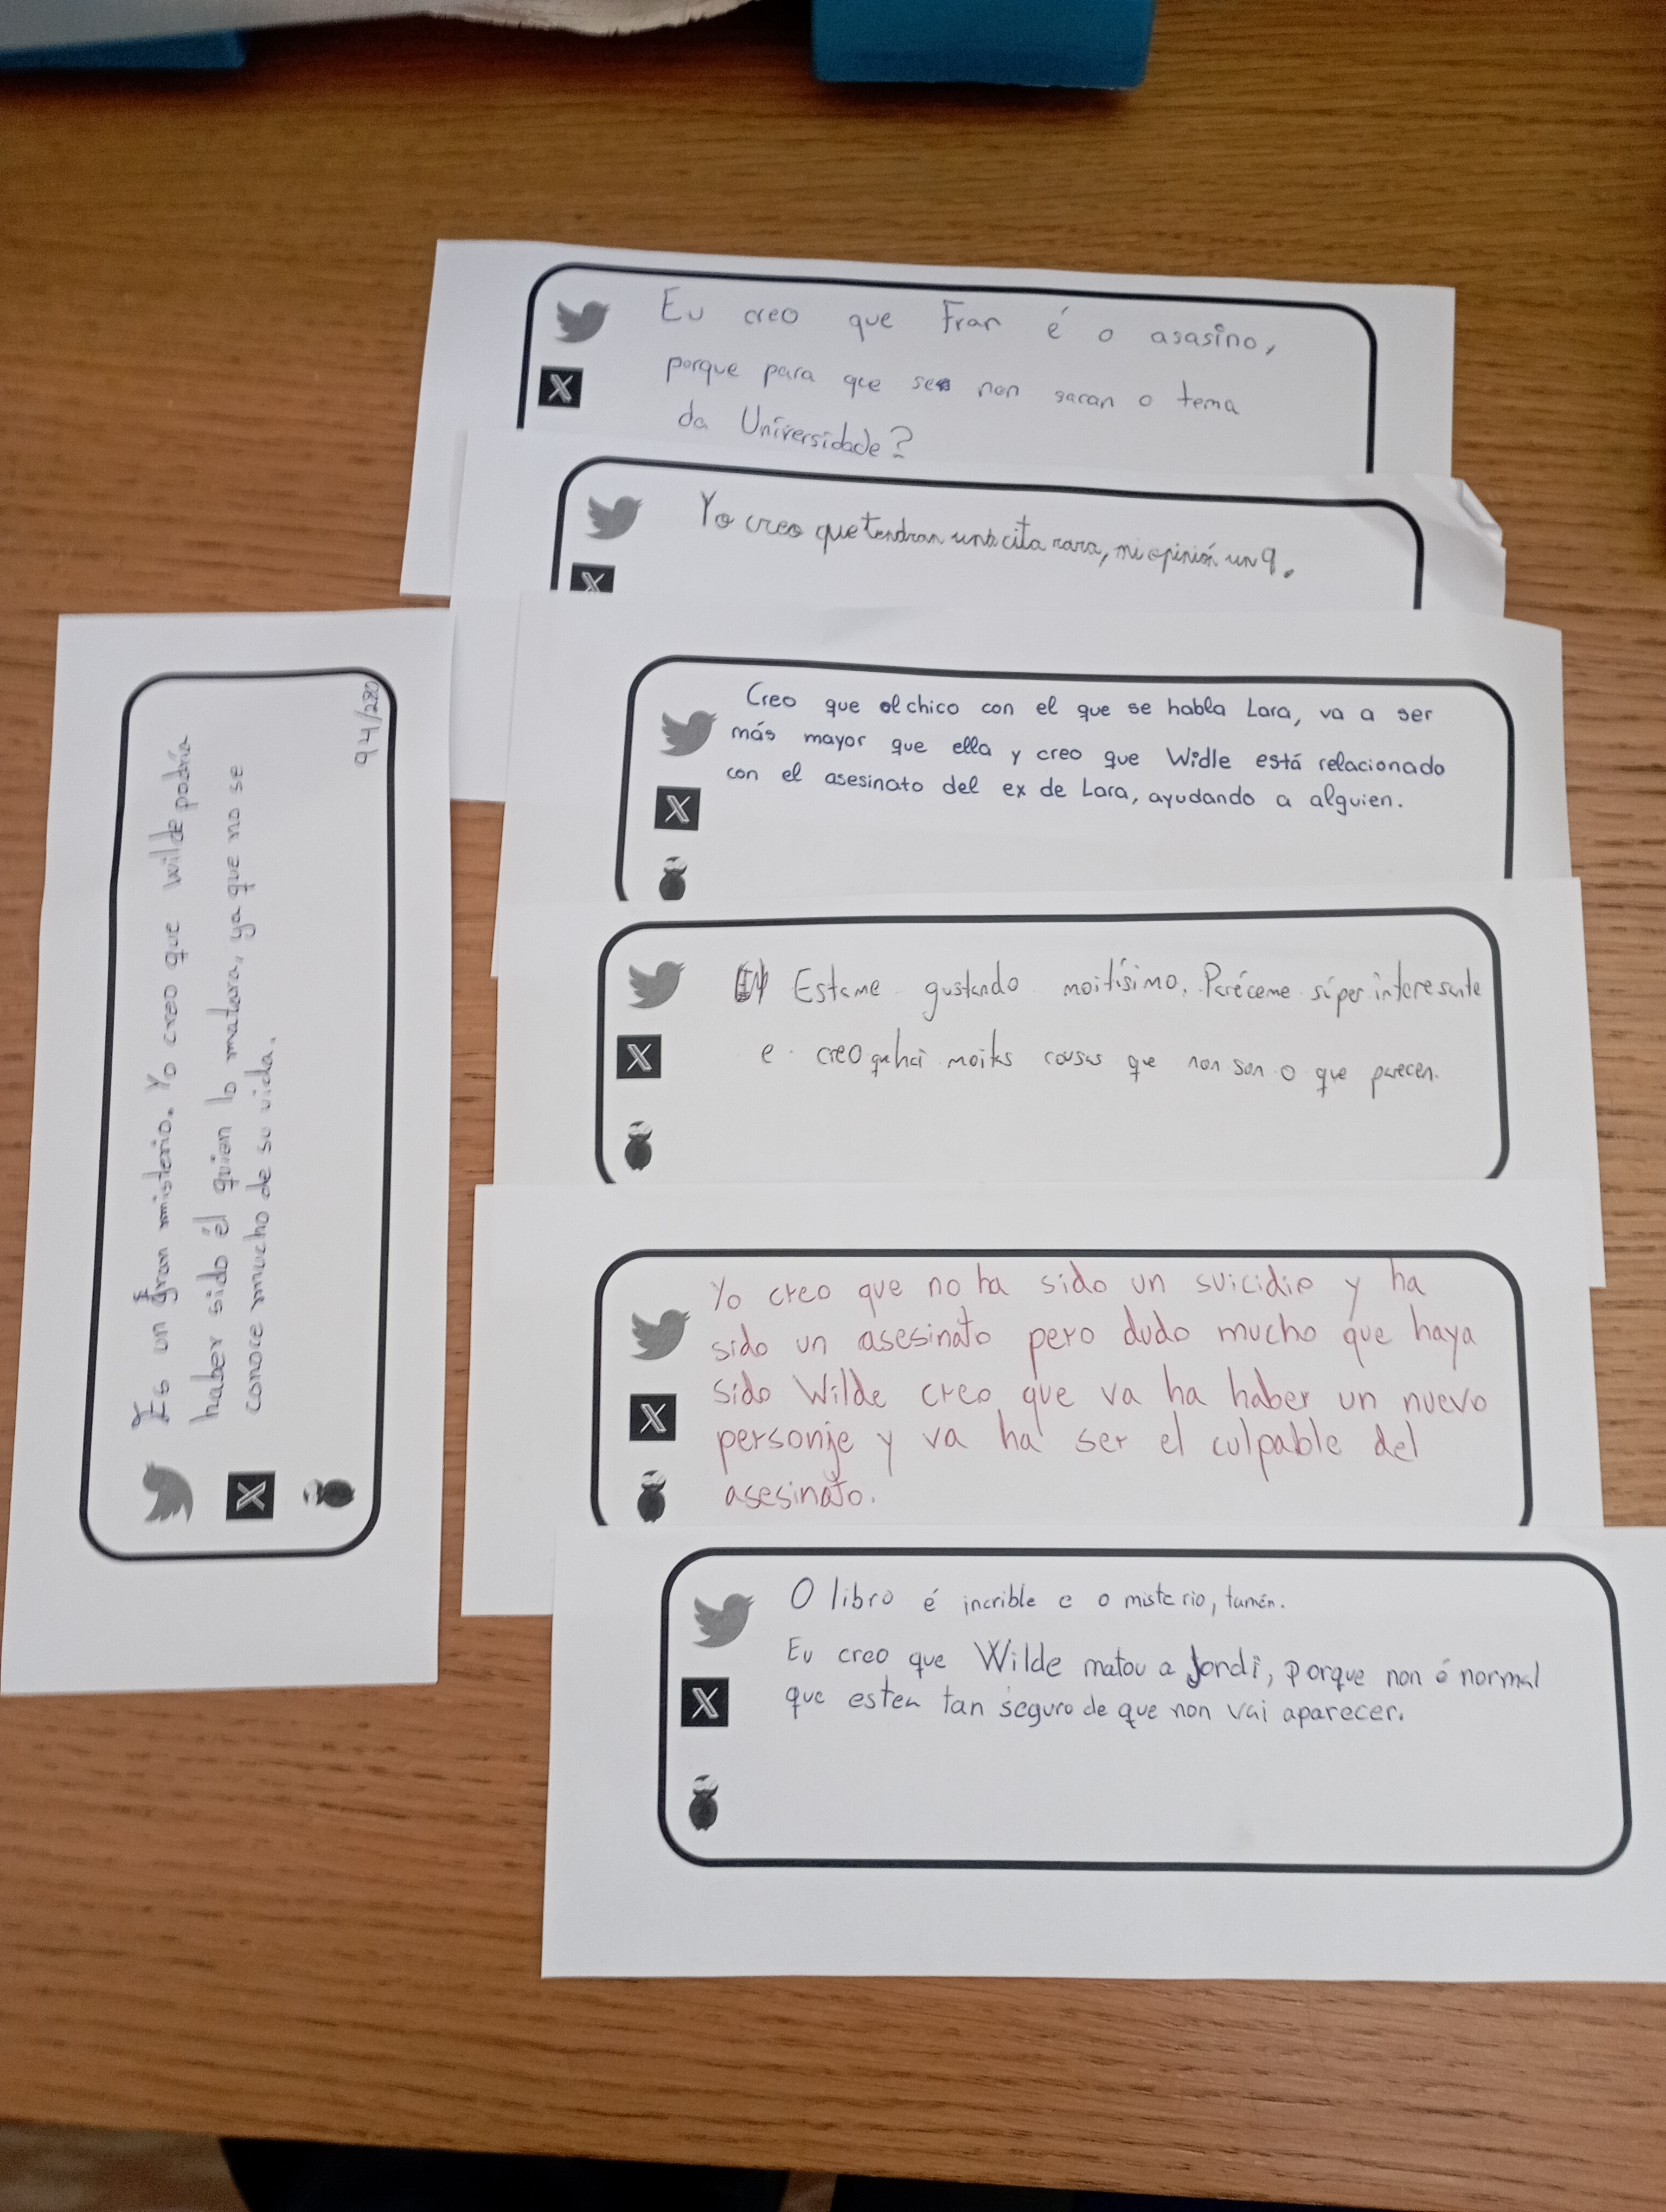 Eu creo que Fran é o asasino,
porque para que se non sacan o tema
da Universidade?
Yo creo que tendran una cita rara, mi opinión un 9.
Creo que el chico con el que se habla Lara, va a ser
más mayor que ella y creo que Widle está relacionado
con el asesinato del ex de Lara, ayudando a alguien.
Estame gustando moitísimo. Paréceme súper interesante
e creo que hai moitas cousas que non son o que parecen.
Yo creo que no ha sido un suicidio y ha
sido un asesinato pero dudo mucho que haya
sido Wilde creo que va ha haber un nuevo
personje y va ha ser el culpable del
asesinato.
O libro é incrible e o misterio, tamén.
Eu creo que Wilde matou a Jordi, porque non é normal
que esten tan seguro de que non vai aparecer.
Es un gran misterio. Yo creo que wilde podría
haber sido él quien lo matara, ya que no se
conoce mucho de su vida.
94/280